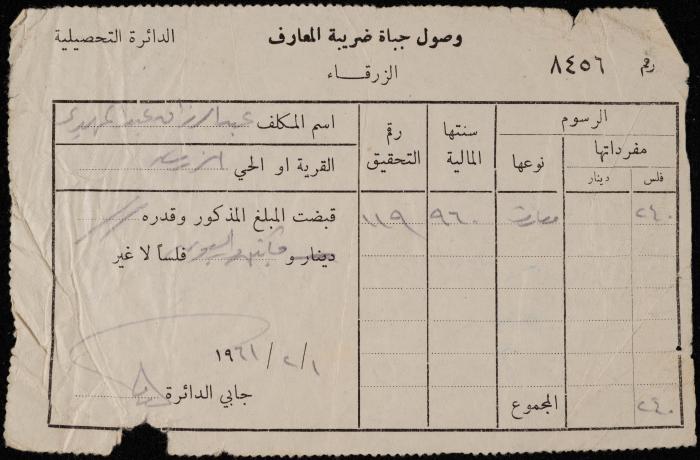 وصول جباة ضريبة المعارف
الدائرة التحصيلية
الزرقاء
رقم ٨٤٥٦
الرسوم
مفرداتها
نوعها
فلس
دينار
سنتها المالية
رقم التحقيق
اسم المكلف عبد الرزاق عبد
القرية او الحي
٢٤٠
معارف
٩٦٠
١١٩
قبضت المبلغ المذكور وقدره
دينار و مئتين واربعون فلساً لا غير
١٩٦١/٢/١
جابي الدائرة
المجموع
٢٤٠